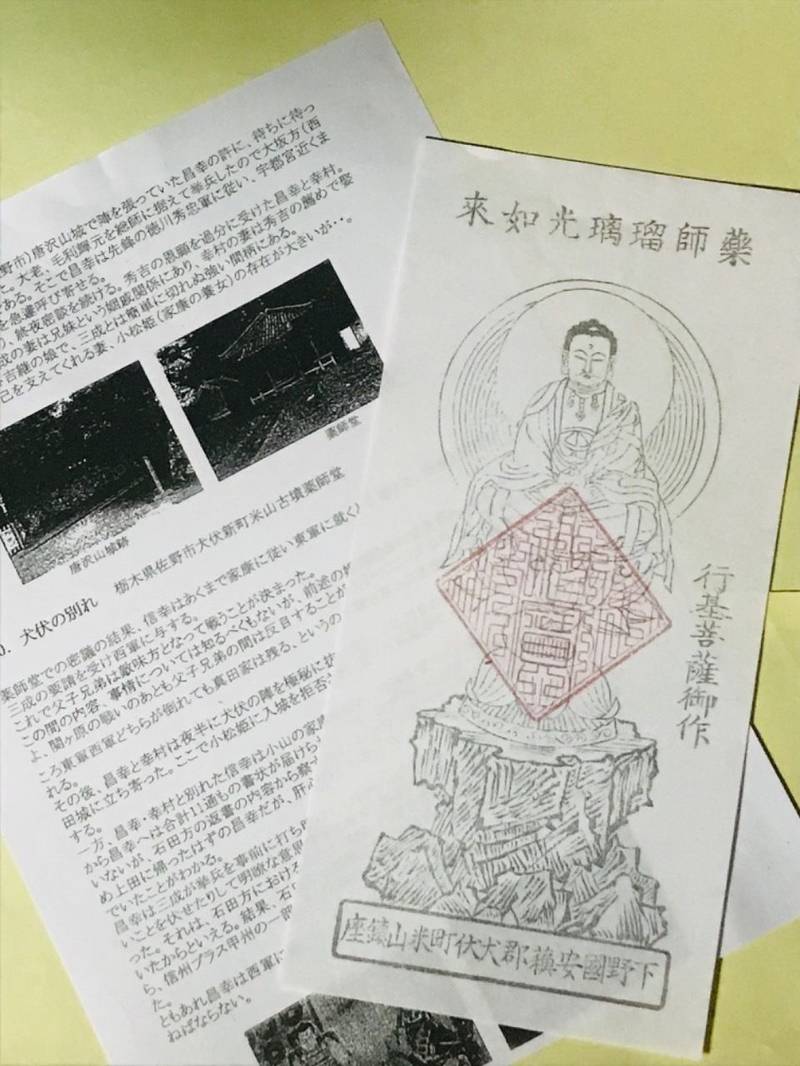 野市)唐沢山城で陣を張っていた昌幸の許に、待ちに待っ
た。大老、毛利輝元を総師に据えて挙兵したので大坂方(西
ある。そこで昌幸は先鋒の徳川秀忠軍に従い、宇都宮近くま
を急遽呼び寄せる。
り、終夜密談を続ける。秀吉の恩顧を過分に受けた昌幸と幸村。
成の妻は兄妹という姻戚関係にあり、幸村の妻は秀吉の薦めで娶
谷吉継の娘で、三成とは簡単に切れぬ強い間柄にある。
己を支えてくれる妻、小松姫(家康の養女)の存在が大きいが・・。
唐沢山城跡
薬師堂
栃木県佐野市大伏新町米山古墳薬師堂
0. 犬伏の別れ
薬師堂での密議の結果、信幸はあくまで家康に従い東軍に就く
三成の要請を受け西軍に与する。
これで父子兄弟は敵味方となって戦うことが決まった。
この間の内容、事情については知るべくもないが、前述の
よ、関ヶ原の戦いのあとも父子兄弟の間は反目することが
ころ東軍西軍どちらが倒れても真田家は残る、というの
れる。
その後、昌幸と幸村は夜半に犬伏の陣を極秘に
田城に立ち寄った。ここで小松姫に入城を拒
する。
一方、昌幸・幸村と別れた信幸は小山の家
から昌幸へは合計11通もの書状が届け
いないが、石田方の返書の内容から
め上田に帰ったはずの昌幸だが、肝
でいたことがわかる。
昌幸は三成が挙兵を事前に打ち
いことを伏せたりして明瞭な意思
った。それは、石田方における
いたからといえる。結果、石
ら、信州プラス甲州の一部
た。
ともあれ昌幸は西軍に
ねばならない。
藥師瑠璃光如来
行基菩薩御作
下野國安蘓郡犬伏町米山鎮座